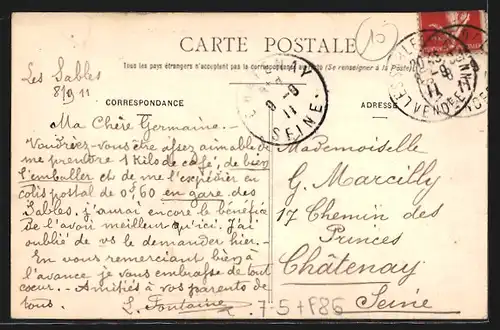 CARTE POSTALE
Tous les pays étrangers n'acceptent pas la correspondance au recto (Se renseigner à la Poste)
CORRESPONDANCE
ADRESSE
Les Sables
8/9 11
Ma Chère Germaine._
Voudriez-vous être assez aimable de
me prendre 1 Kilo de café, de bien
l'emballer et de me l'expédier en
colis postal de 0f,60 en gare des
Sables. j'aurai encore le bénéfice
de l'avoir meilleur qu'ici. J'ai
oublié de vs le demander hier._
En vous remerciant bien à
l'avance je vous embrasse de tout
cœur._ Amitiés à vos parents de
tous.
L. Fontaine
Mademoiselle
G. Marcilly
17 Chemin des
Princes
Châtenay
Seine
7-5+F86
10
SEINE
8-9
11
VENDÉE